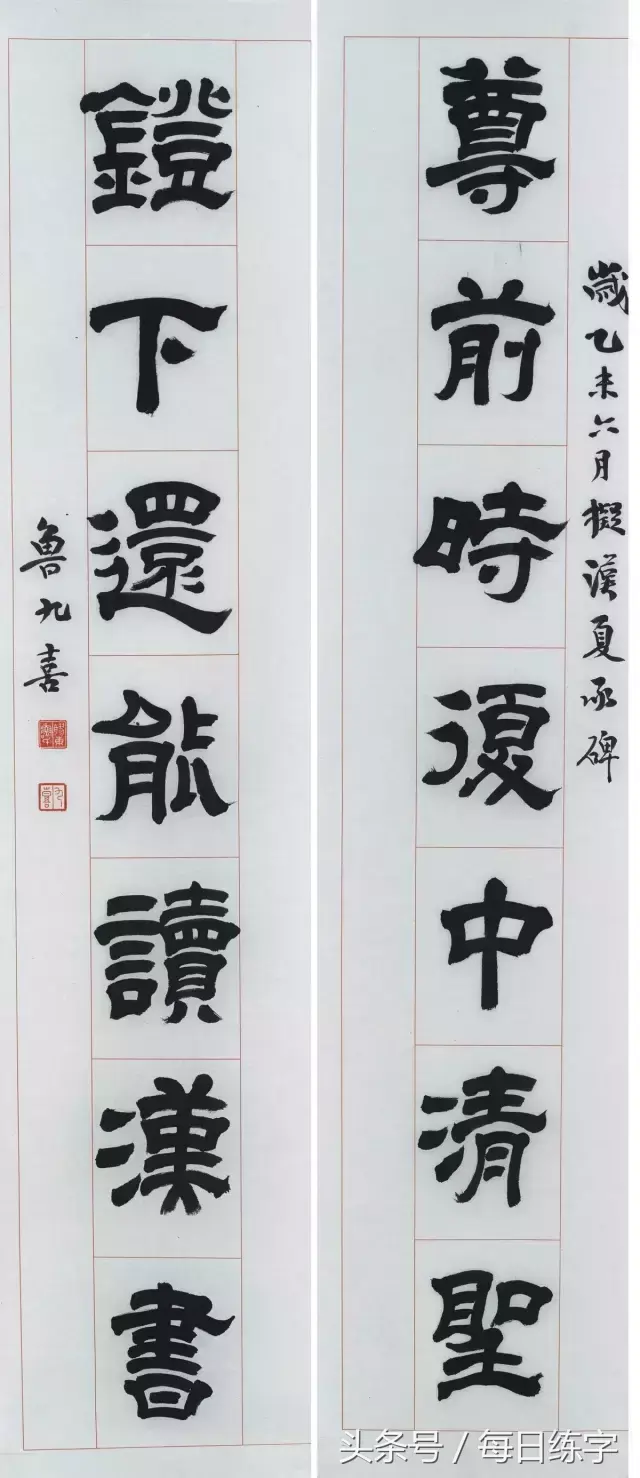 歲乙未六月擬漢夏承碑
尊前時復中清聖
鐙下還能讀漢書
魯九喜
九喜
头条号 / 每日练字